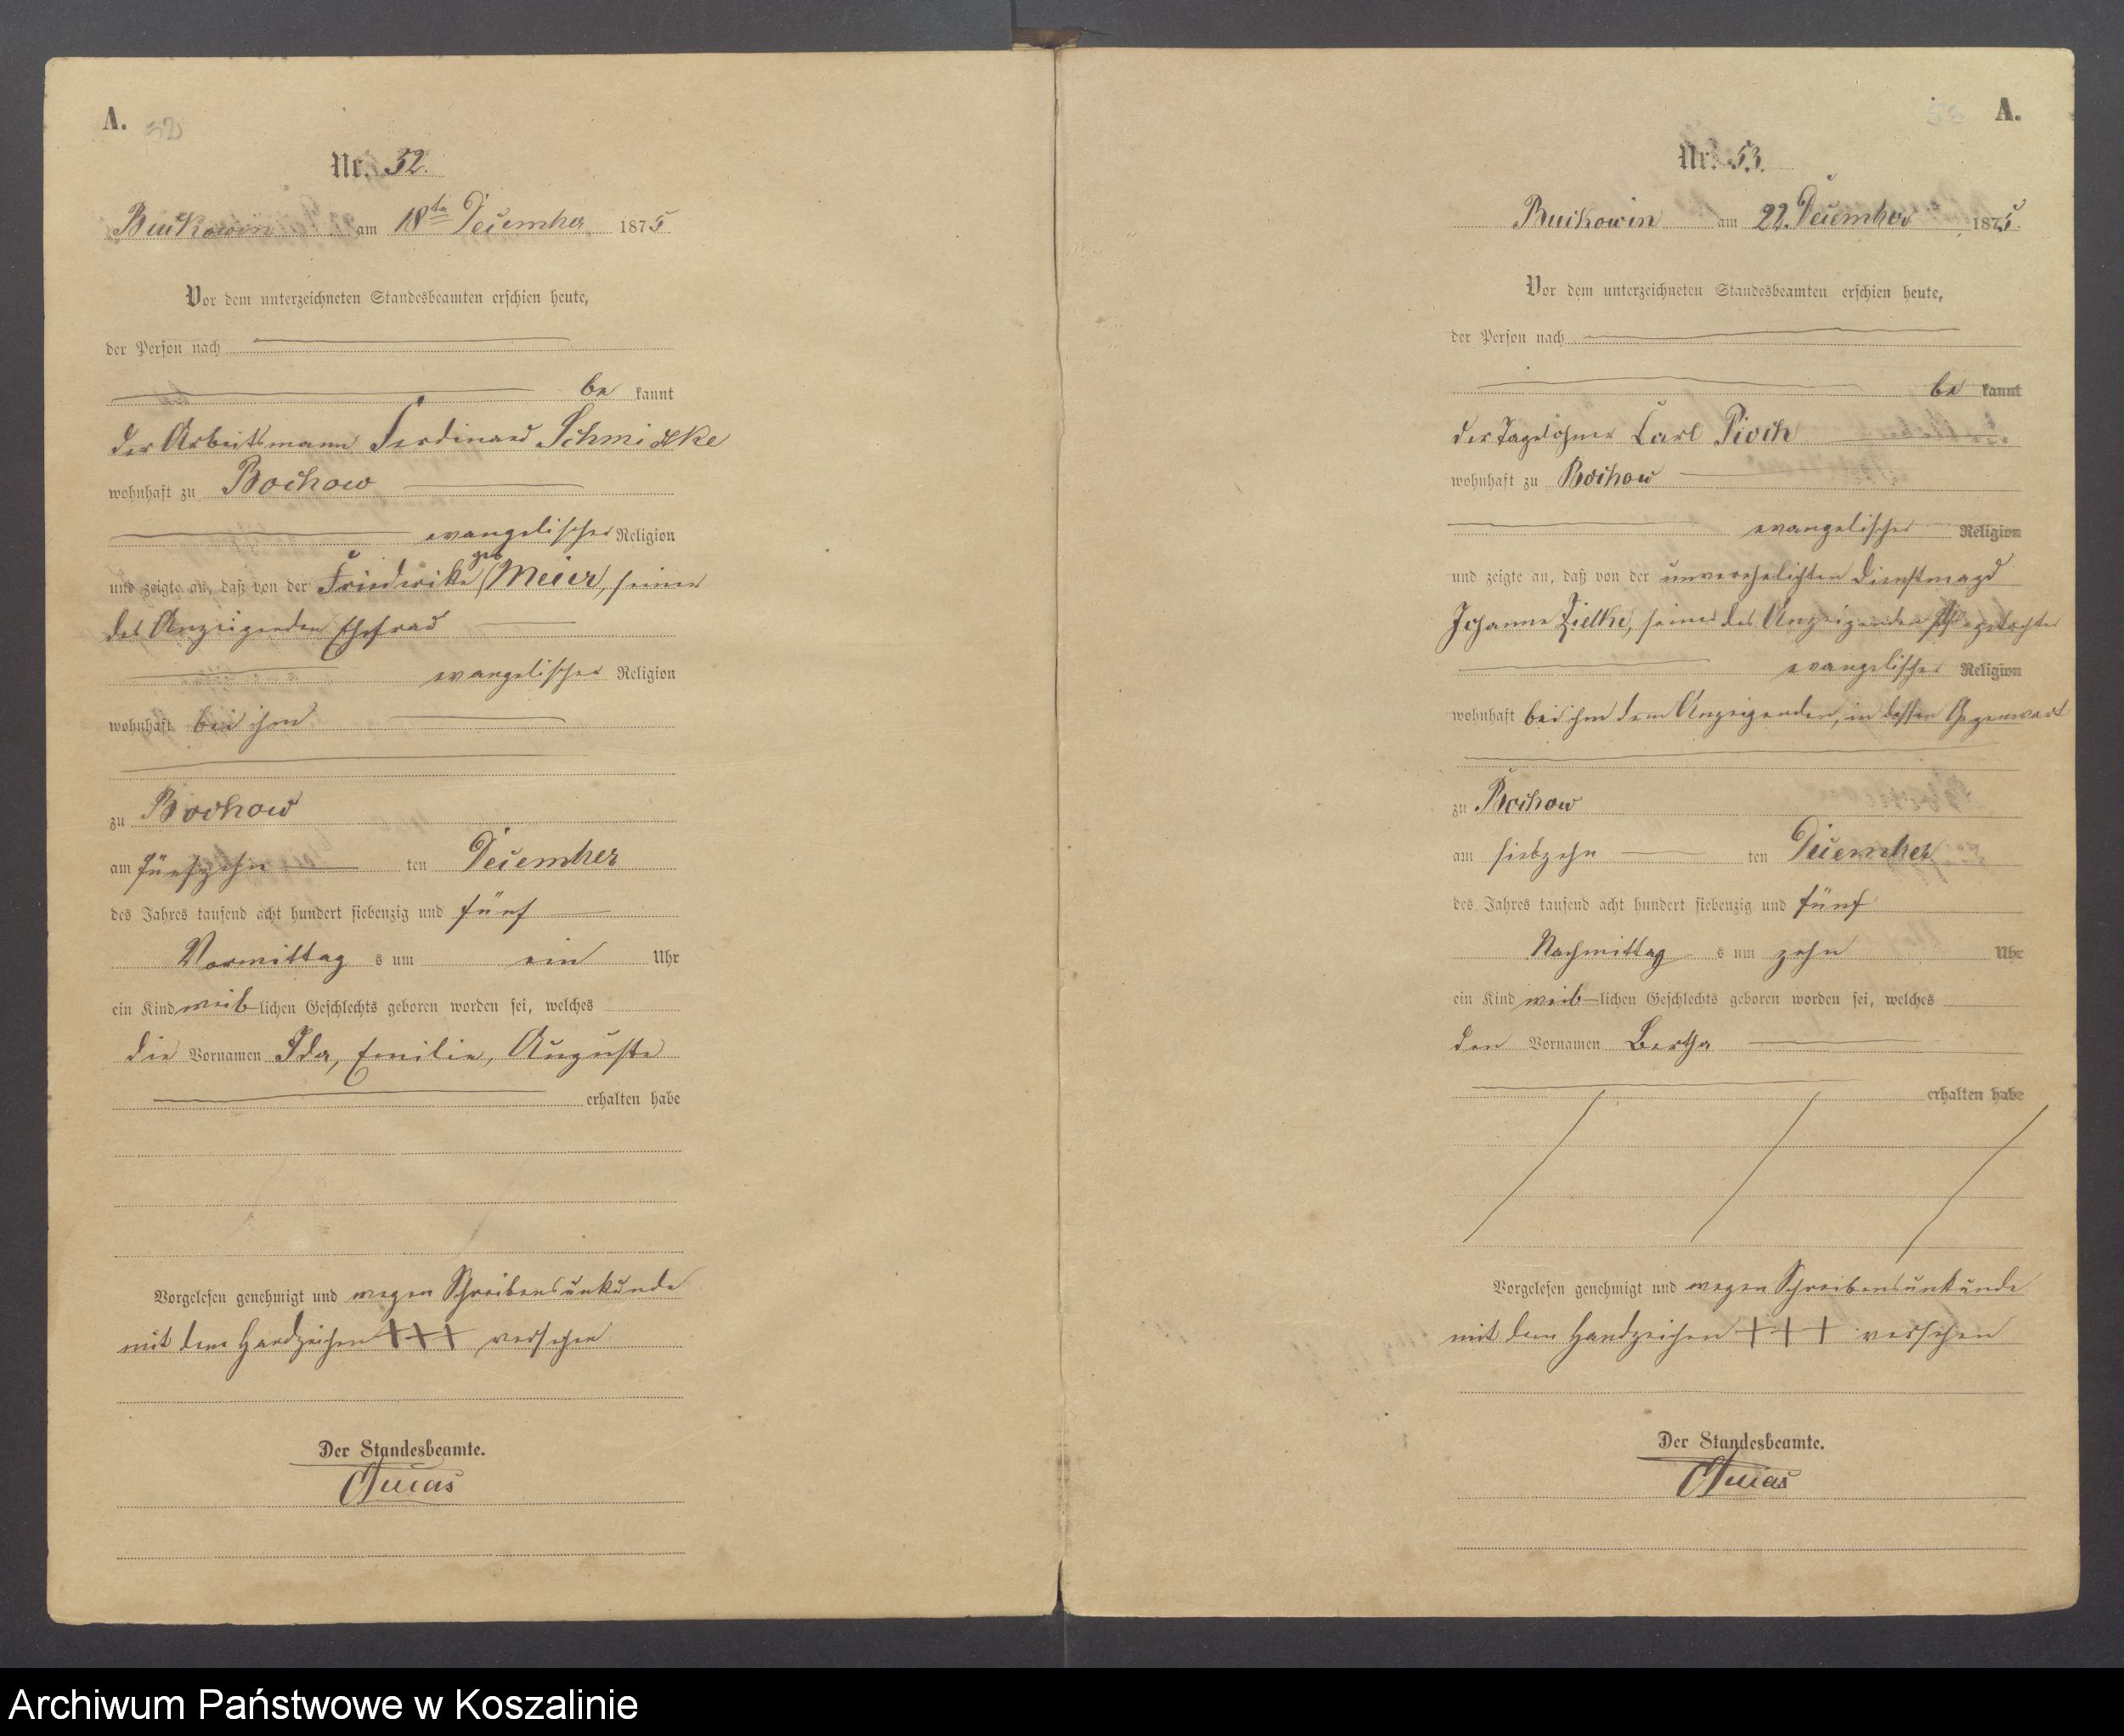 A.
52
Nr. 52.
Buckowin am 18ten December 1875
Vor dem unterzeichneten Standesbeamten erschien heute,
der Person nach
be kannt
der Arbeitsmann Ferdinand Schmidtke
wohnhaft zu Bochow
evangelischer Religion
und zeigte an, daß von der Friederike geb Meier, seiner
des Anzeigenden Ehefrau
evangelischer Religion
wohnhaft bei ihm
zu Bochow
am fünfzehn ten December
des Jahres tausend acht hundert siebenzig und fünf
Vormittag s um ein Uhr
ein Kind weib lichen Geschlechts geboren worden sei, welches
die Vornamen Ida, Emilie, Auguste
erhalten habe
Vorgelesen genehmigt und wegen Schreibensunkunde
mit dem Handzeichen +++ versehen
Der Standesbeamte.
53 A.
Nr. 53.
Buckowin am 22. December 1875.
Vor dem unterzeichneten Standesbeamten erschien heute,
der Person nach
be kannt
der Tagelöhner Carl Pioch
wohnhaft zu Bochow
evangelischer Religion
und zeigte an, daß von der unverehelichten Dienstmagd
Johanne Zielke, seiner des Anzeigenden Pflegetochter
evangelischer Religion
wohnhaft bei ihm dem Anzeigenden, in dessen Gegenwart
zu Bochow
am siebzehn ten December
des Jahres tausend acht hundert siebenzig und fünf
Nachmittag s um zehn Uhr
ein Kind weib lichen Geschlechts geboren worden sei, welches
den Vornamen Bertha
erhalten habe
Vorgelesen genehmigt und wegen Schreibensunkunde
mit dem Handzeichen +++ versehen
Der Standesbeamte.
Archiwum Państwowe w Koszalinie